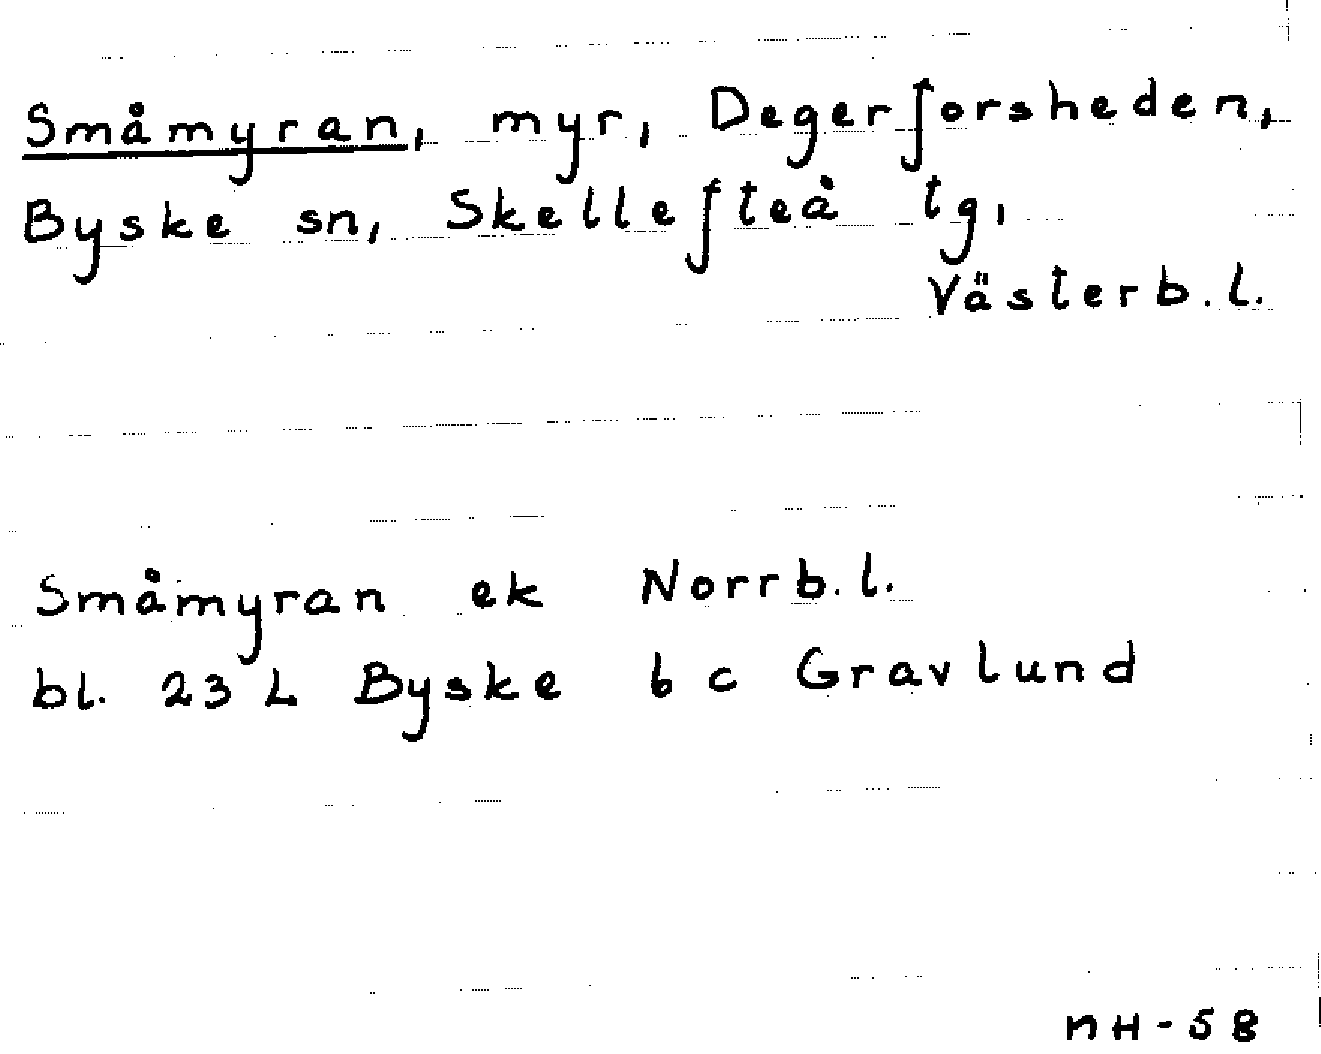 Småmyran, myr, Degerforsheden,
Byske sn, Skellefteå tg,
Västerb.l.
Småmyran ek Norrb.l.
bl. 23 L Byske b c Gravlund
nH-58